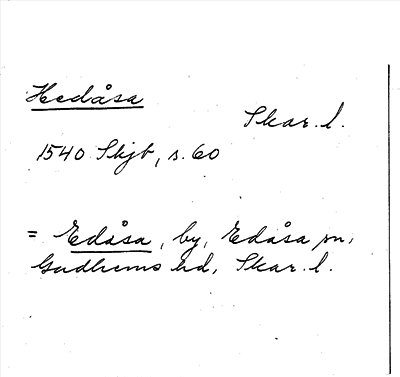 Hedåsa
Skar. l.
1540 Skjb, s. 60
= Edåsa, by, Edåsa sn,
Gudhems hd, Skar. l.